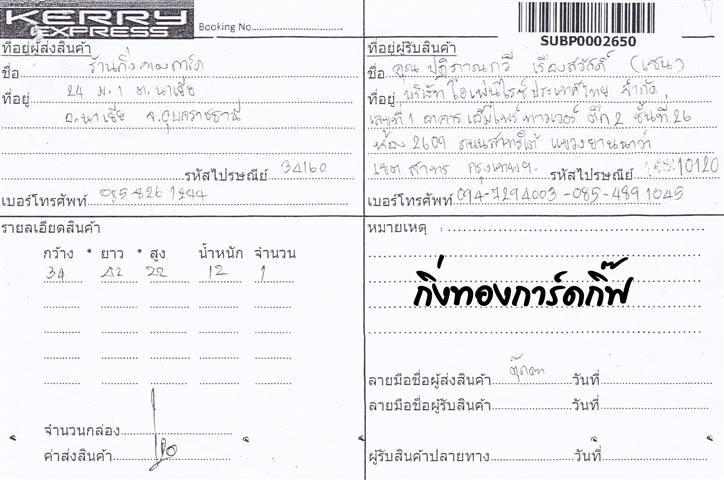 KERRY
EXPRESS
Booking No.
SUBP0002650
ที่อยู่ผู้ส่งสินค้า
ชื่อ ร้านกิ่งทองการ์ด
ที่อยู่ 24 ม.1 ต.นาเยีย
อ.นาเยีย จ.อุบลราชธานี
รหัสไปรษณีย์ 34160
เบอร์โทรศัพท์ 085 826 1244
ที่อยู่ผู้รับสินค้า
ชื่อ คุณ ปฏิภาณกวี เรืองสวัสดิ์ (เซน)
ที่อยู่ บริษัท โอเพ่นไรซ์ ประเทศไทย จำกัด
เลขที่ 1 อาคาร เอ็มไพร์ ทาวเวอร์ ตึก 2 ชั้นที่ 26
ห้อง 2609 ถนนสาทรใต้ แขวงยานนาวา
เขต สาทร กรุงเทพฯ รหัสไปรษณีย์ 10120
เบอร์โทรศัพท์ 094-7294003 - 085-489 1045
รายลเอียดสินค้า
กว้าง * ยาว * สูง น้ำหนัก จำนวน
34 42 22 12 1
จำนวนกล่อง
ค่าส่งสินค้า
หมายเหตุ :
กิ่งทองการ์ดกิ๊ฟ
ลายมือชื่อผู้ส่งสินค้า ตุ๊กตา วันที่
ลายมือชื่อผู้รับสินค้า วันที่
ผู้รับสินค้าปลายทาง วันที่